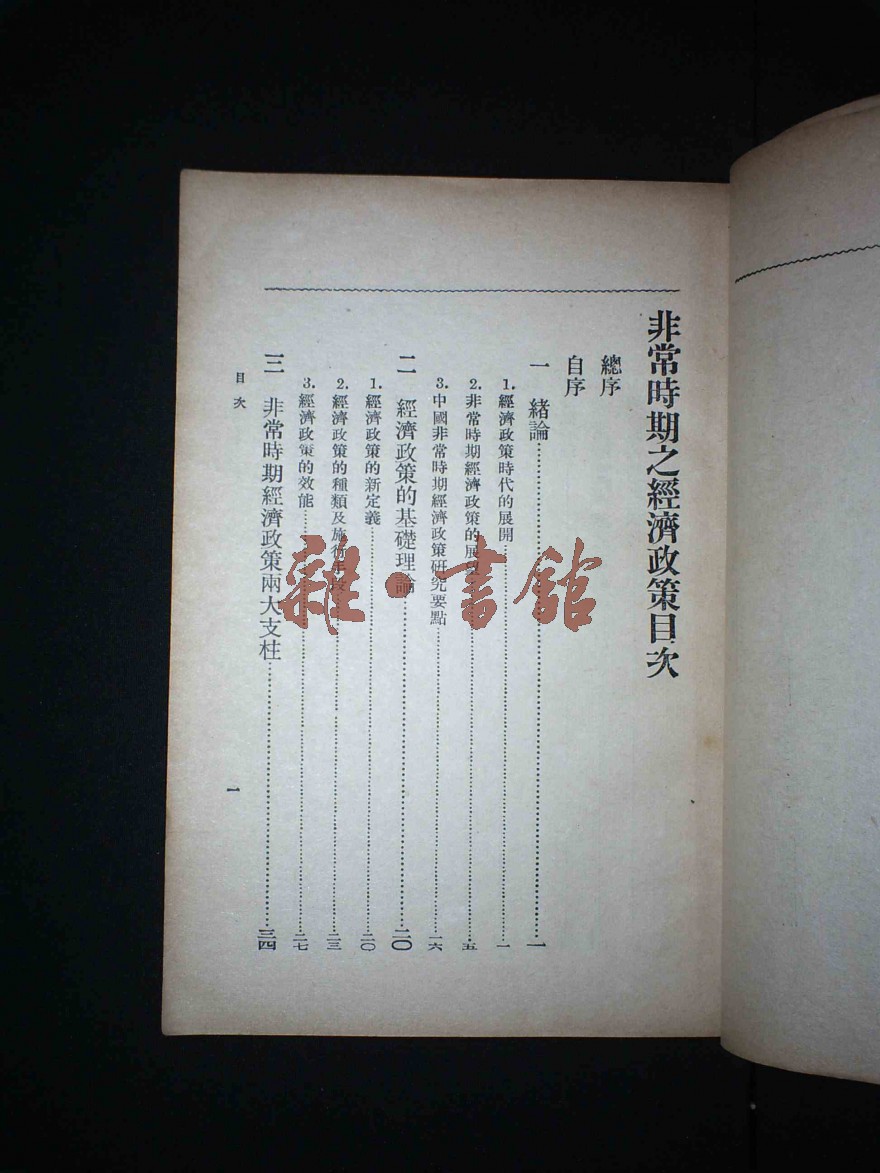 非常時期之經濟政策目次
總序
自序
一 緒論……一
1. 經濟政策時代的展開……一
2. 非常時期經濟政策的展望……五
3. 中國非常時期經濟政策研究要點……一六
二 經濟政策的基礎理論……二〇
1. 經濟政策的新定義……二〇
2. 經濟政策的種類及施行手段……二三
3. 經濟政策的效能……二七
三 非常時期經濟政策兩大支柱……三四
目次
一
雜·書館